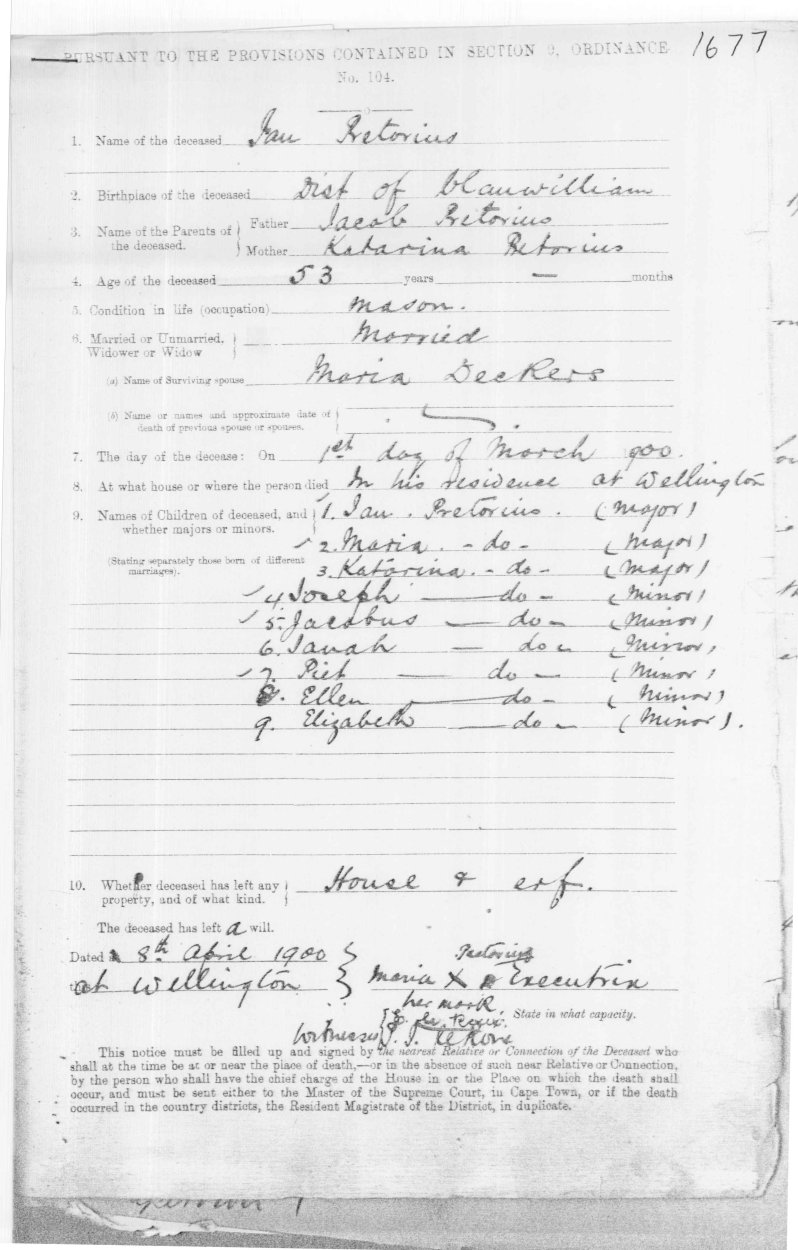 PURSUANT TO THE PROVISIONS CONTAINED IN SECTION 9, ORDINANCE
1677
No. 104.
1. Name of the deceased Jan Pretorius
2. Birthplace of the deceased Dist of Clanwilliam
3. Name of the Parents of the deceased. Father Jacob Pretorius
Mother Katarina Pretorius
4. Age of the deceased 53 years — months
5. Condition in life (occupation) Mason.
6. Married or Unmarried, Widower or Widow Married
(a) Name of Surviving spouse Maria Deckers
(b) Name or names and approximate date of death of previous spouse or spouses.
7. The day of the decease: On 1st day of March 900.
8. At what house or where the person died In his residence at Wellington
9. Names of Children of deceased, and whether majors or minors. 1. Jan. Pretorius. (Major)
2. Maria. - do - (Major)
(Stating separately those born of different marriages). 3. Katarina. - do - (Major)
4. Joseph — do - (Minor)
5. Jacobus — do - (Minor)
6. Sanah — do - (Minor)
7. Piet — do - (Minor)
8. Ellen — do - (Minor)
9. Elizabeth — do - (Minor).
10. Whether deceased has left any property, and of what kind. House & erf.
The deceased has left a will.
Dated 8th April 1900
at Wellington Maria X Executrix
her mark
State in what capacity.
Witnesses
This notice must be filled up and signed by the nearest Relative or Connection of the Deceased who
shall at the time be at or near the place of death,—or in the absence of such near Relative or Connection,
by the person who shall have the chief charge of the House in or the Place on which the death shall
occur, and must be sent either to the Master of the Supreme Court, in Cape Town, or if the death
occurred in the country districts, the Resident Magistrate of the District, in duplicate.